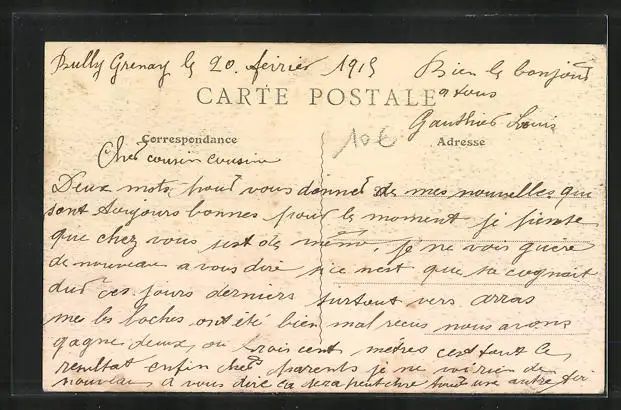 Bully Grenay le 20. février 1915
Bien le bonjour
a tous
CARTE POSTALE
Gauthier Louis
10€
Correspondance
Adresse
Cher cousin cousine
Deux mots pour vous donner de mes nouvelles que
sont toujours bonnes pour le moment je pense
que chez vous s'est de même, je ne vois guère
de nouveau a vous dire si ce n'est que sa cognait
dur ces jours derniers surtout vers arras
mes les boches ont été bien mal recus nous avons
gagne deux, ou trois cent mètres cest tout le
resultat enfin cher parents je ne voi rien de
nouveau a vous dire ca sera peut etre pour une autre foi